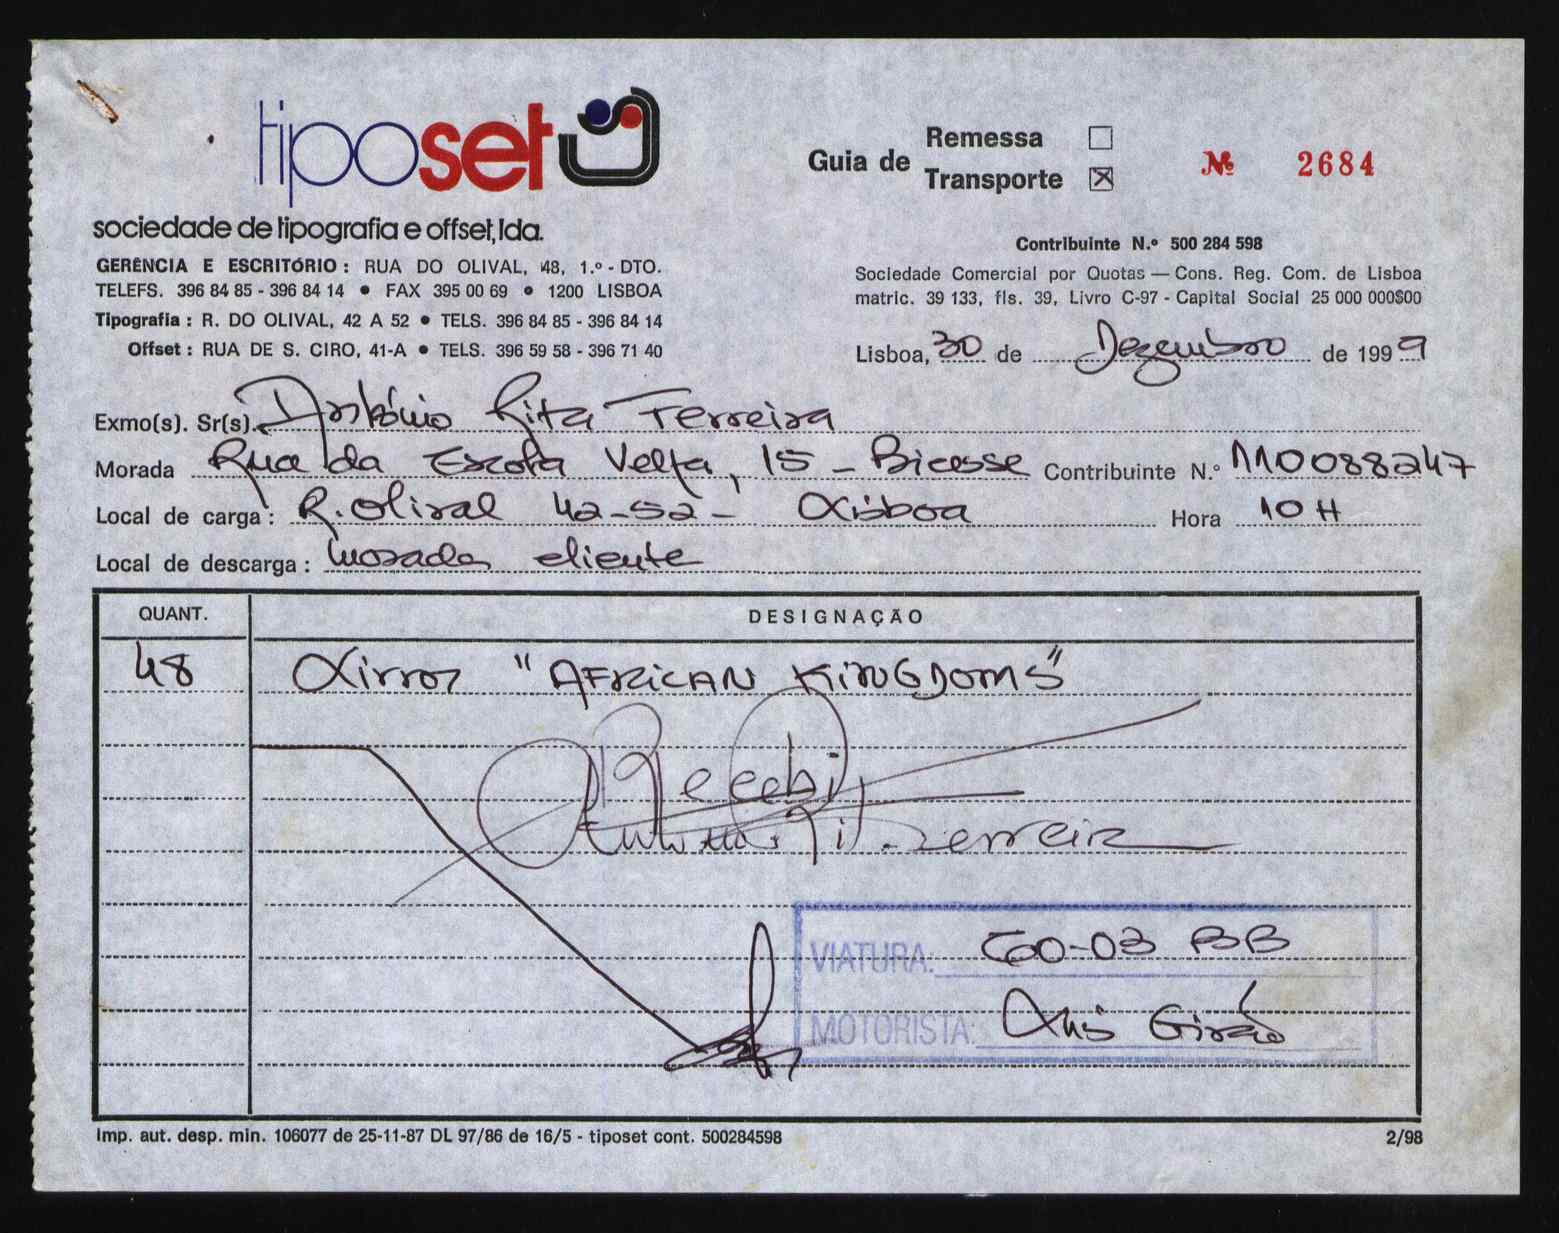 tiposet
sociedade de tipografia e offset, lda.
GERÊNCIA E ESCRITÓRIO : RUA DO OLIVAL, 48, 1.º - DTO.
TELEFS. 396 84 85 - 396 84 14 • FAX 395 00 69 • 1200 LISBOA
Tipografia : R. DO OLIVAL, 42 A 52 • TELS. 396 84 85 - 396 84 14
Offset : RUA DE S. CIRO, 41-A • TELS. 396 59 58 - 396 71 40
Guia de Remessa
Transporte X
Nº 2684
Contribuinte N.º 500 284 598
Sociedade Comercial por Quotas — Cons. Reg. Com. de Lisboa
matric. 39 133, fls. 39, Livro C-97 - Capital Social 25 000 000$00
Lisboa, 30 de Dezembro de 1999
Exmo(s). Sr(s). António Rita Ferreira
Morada Rua da Escola Velha, 15 - Bicesse Contribuinte N.º 110088247
Local de carga : R. Olival 42-52 - Lisboa Hora 10 H
Local de descarga : morada cliente
QUANT. DESIGNAÇÃO
48 Livros "AFRICAN KINGDOMS"
Recebi
António Rita Ferreira
VIATURA: 60-03 BB
MOTORISTA: Luís Girão
Imp. aut. desp. min. 106077 de 25-11-87 DL 97/86 de 16/5 - tiposet cont. 500284598 2/98